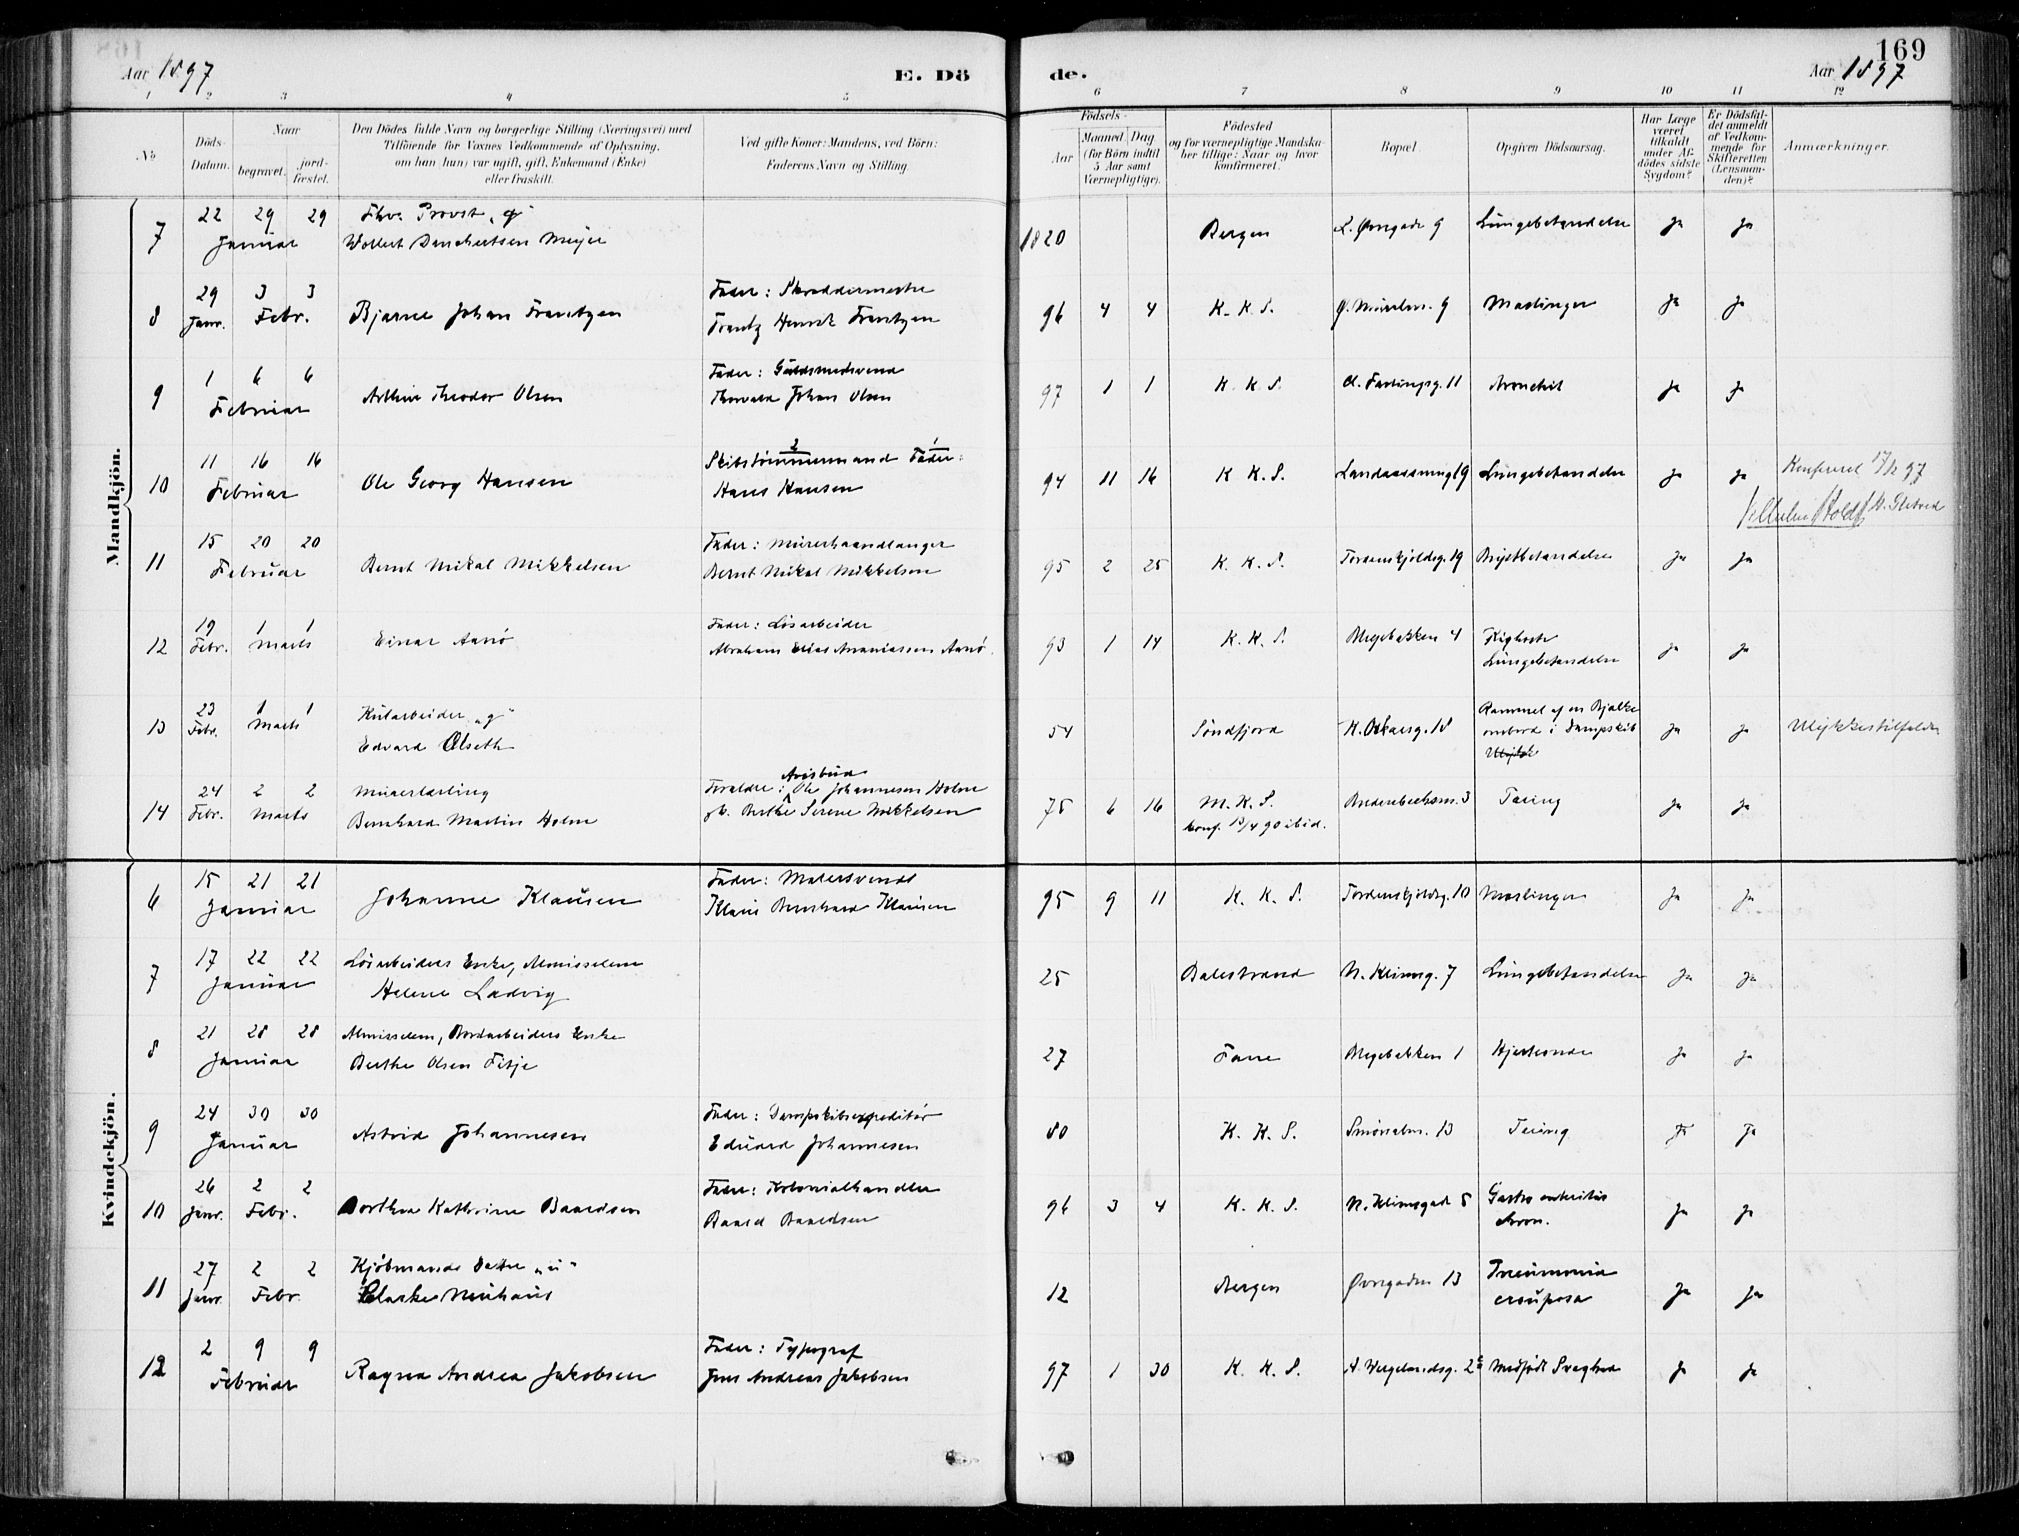 169
Aar 1897
E. Dö de.
Aar 1897
1 2 3 4 5 6 7 8 9 10 11 12
No
Döds-Datum.
Naar
begravet.
jord-fæstet.
Den Dödes fulde Navn og borgerlige Stilling (Næringsvei) med
Tilföiende for Voxnes Vedkommende af Oplysning,
om han (hun) var ugift, gift, Enkemand (Enke)
eller fraskilt.
Ved gifte Koner: Mandens, ved Börn:
Faderens Navn og Stilling.
Födsels-
Aar
Maaned Dag
(for Börn indtil
5 Aar samt
Værnepligtige).
Födested
og for værnepligtige Mandska-
ber tillige: Naar og hvor
konfirmeret.
Bopæl.
Opgiven Dödsaarsag.
Har Læge
været
tilkaldt
under Af-
dödes sidste
Sygdom?
Er Dödsfal-
det anmeldt
af Vedkom-
mende for
Skifteretten
(Lensman-
den)?
Anmærkninger.
Mandkjön.
7 22 29 29 Januar
Provst "g"
Wollert Danchertsen Meyer
1820 Bergen Øvregade 9 Lungebetændelse Ja Ja
8 29 Janr. 3 3 Febr.
Bjarne Johan Frantzen
Fader: Skreddermester
Frantz Henrik Frantzen
96 4 4 K. K. S. Ø. Murelm. 9 Mæslinger Ja Ja
9 1 6 6 Februar
Arthur Theodor Olsen
Fader: Guldsmedsvend
Thorvald Johan Olsen
97 1 1 K. K. S. Cl. Fastingsg. 11 Bronchit Ja Ja
10 11 16 16 Februar
Ole Georg Hansen
Skibstømmermand Fader:
Hans Hansen
94 11 16 K. K. S. Landaasveug 19 Lungebetændelse Ja Ja
Konfereret 17/2 97
11 15 20 20 Februar
Bernt Mikal Mikkelsen
Fader: Murerhaandlanger
Bernt Mikal Mikkelsen
95 2 25 K. K. S. Tordenskjoldsg. 19 Brystbetændelse Ja Ja
12 19 Febr. 1 1 Marts
Einar Aarø
Fader: Løsarbeider
Abraham Elias Ananiassen Aarø
93 1 14 K. K. S. Blegebakken 4 Kighoste
Lungebetændelse Ja Ja
13 23 Febr. 1 1 Marts
Kularbeider "g"
Edvard Olseth
54 Søndfjord K. Oskarsg. 18
Rammet af en Bjælke
ombord i Dampskib
Ja Ja Ulykkestilfælde
14 24 Febr. 2 2 Marts
Murerlærling
Bernhard Martin Holm
Avisbud
Forældre: Ole Johannesen Holm
og Berthe Serene Mikkelsen
75 6 16 M. K. S.
konf. 13/4 90 ibid. 3 Tæring Ja Ja
Kvindekjön.
6 15 21 21 Januar
Johanne Klausen
Fader: Malersvend
Klaus Bernhard Klausen
95 9 11 K. K. S. Tordenskjoldsg. 10 Mæslinger Ja Ja
7 17 22 22 Januar
Løsarbeiders Enke, Almisselem
Helene Ladvig
25 Balestrand N. Klimsg. 7 Lungebetændelse Ja Ja
8 21 28 28 Januar
Almisselem, Jordarbeiders Enke
Berthe Olsen Fitje
27 Fane Blegebakken 1 Hjerteonde Ja Ja
9 24 30 30 Januar
Astrid Johannesen
Fader: Dampskibsexpeditør
Eduard Johannesen
80 K. K. S. Smørsalm. 13 Tæring Ja Ja
10 26 Janr. 2 2 Febr.
Dorthea Kathrine Baardsen
Fader: Kolonialhandler
Baard Baardsen
96 3 4 K. K. S. N. Klimsgade 5 Gastro enteritis
chron. Ja Ja
11 27 Janr. 2 2 Febr.
Kjøbmands Datter "u"
Neuhaus
12 Bergen Øvregaden 13 Pneumonia
crouposa Ja Ja
12 2 9 9 Februar
Ragna Andrea Jakobsen
Fader: Typograf
Jens Andreas Jakobsen
97 1 30 K. K. S. Wergelandsg. 2 Medfødt Svaghed Ja Ja